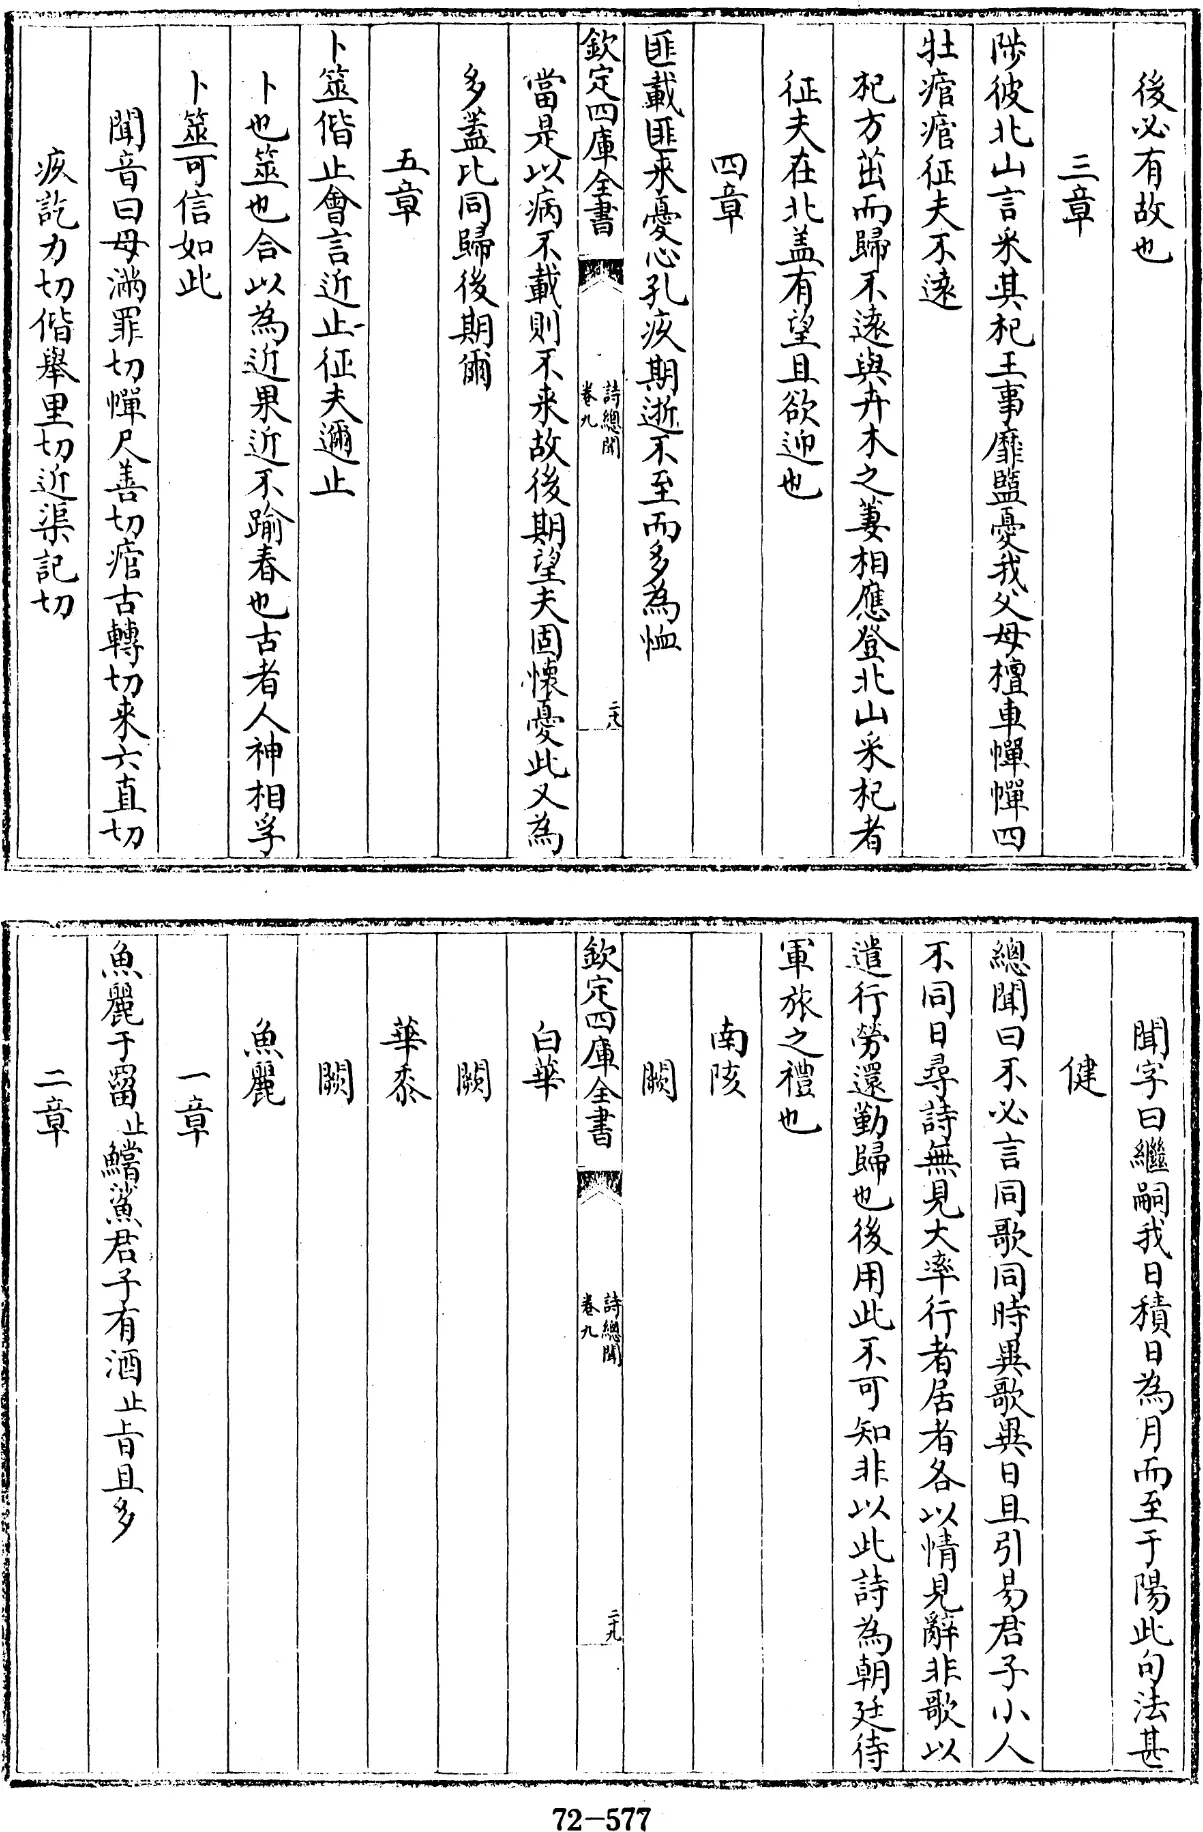 後必有故也
三章
陟彼北山言采其杞王事靡盬憂我父母檀車幝幝四
牡痯痯征夫不遠
杞方茁而歸不遠與卉木之萋相應登北山采杞者
征夫在北盖有望且欲迎也
四章
匪載匪来憂心孔疚期逝不至而多為恤
欽定四庫全書
詩總聞
卷九
二十八
當是以病不載則不来故後期望夫固懐憂此又為
多蓋比同歸後期爾
五章
卜筮偕止會言近止征夫邇止
卜也筮也合以為近果近不踰春也古者人神相孚
卜筮可信如此
聞音曰母滿罪切幝尺善切痯古轉切来六直切
疚訖力切偕舉里切近渠記切
聞字曰繼嗣我日積日為月而至于陽此句法甚
健
總聞曰不必言同歌同時異歌異日且引易君子小人
不同日尋詩無見大率行者居者各以情見辭非歌以
遣行勞還勤歸也後用此不可知非以此詩為朝廷待
軍旅之禮也
南陔
闕
欽定四庫全書
詩總聞
卷九
二十九
白華
闕
華黍
闕
魚麗
一章
魚麗于罶止鱨鯊君子有酒止旨且多
二章
72-577